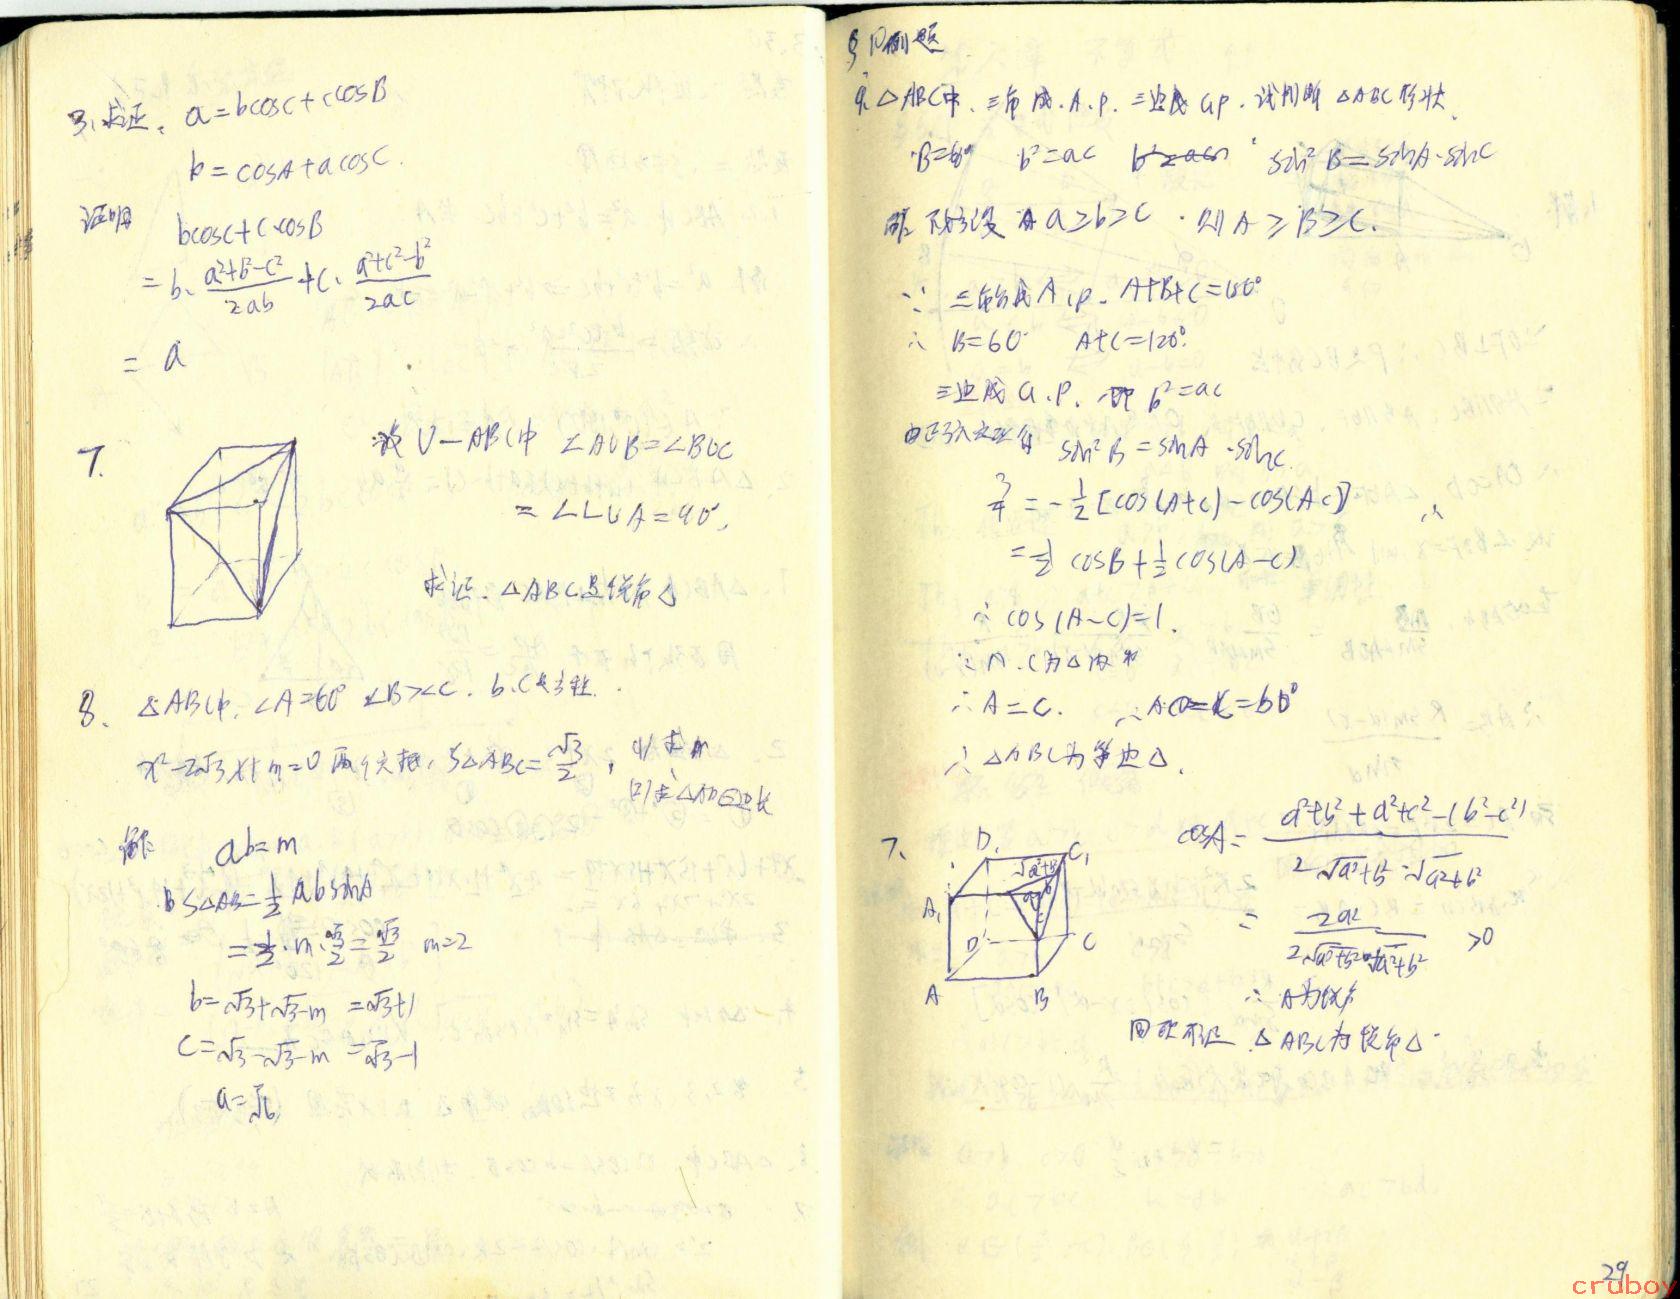 3、求证、 a=bcosC+ccosB
b=ccosA+acosC.
证明
bcosC+c·cosB
=b·\frac{a²+b²-c²}{2ab}+c·\frac{a²+c²-b²}{2ac}
= a
7. 设 O—ABC中 ∠AOB=∠BOC
=∠COA=90°,
求证、△ABC是锐角△
8、 △ABC中, ∠A=60° ∠B>∠C. b、C是方程
x²-2√3x+m=0 两个实根, S△ABC=\frac{√3}{2}, (1) 求m
(2) 求△边长
解: ab=m
S△AB=\frac{1}{2}absinA
=\frac{1}{2}·m·\frac{√3}{2}=\frac{√3}{2} m=2
b=√3+√3-m =√3+1
C=√3-√3-m =√3-1
a=√6
例题
△ABC中、三角成.A.P. 三边成GP. 试判断△ABC形状.
B=60° b²=ac sin²B=sinA·sinC
不妨设 a≥b≥c . 则A≥B≥C.
∵ 三角成A.P. A+B+C=180°
∴ B=60° A+C=120°.
三边成G.P. 即 b²=ac
由正弦定理得 sin²B=sinA·sinC.
\frac{3}{4}=-\frac{1}{2}[cos(A+C)-cos(A-C)] ∴
=\frac{1}{2}cosB+\frac{1}{2}cos(A-C)
∴ cos(A-C)=1.
∵ A.C为△内角
∴ A=C. ∴ A=C=60°
∴ △ABC为等边△.
7、 D₁ C₁
√a²+b²
A₁
D C
A B
cosA=\frac{a²+b²+a²+c²-(b²-c²)}{2√a²+b²·√a²+b²}
=\frac{2a²}{2√a²+b²·√a²+b²} >0
∴ A为锐角
同理可证 △ABC为锐角△.
29
cruboy